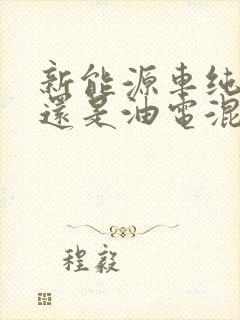 新能源車純
還是油電混
程毅